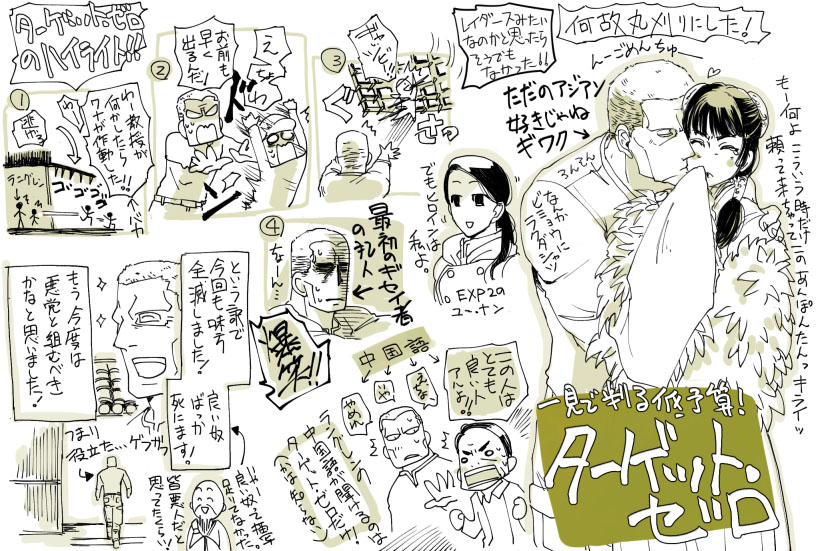 ターゲット・ゼロ
のハイライト!!
①
わー教授が
何かしたら
ワナが作動
した!!
ゴゴゴゴ
ラングレン
②
お前も
早く
出るんだ!
え
ちょ
③
④
最初のギセイ者
の主人
なーん…
爆笑!!
レイダースみたい
なのかと思ったら
そうでも
なかった!!
何故丸刈りにした!
んーごめんちゅ
ただのアジアン
好きじゃね
ギワク
もー何よこういう時だけ
頼ってきちゃって
このあんぽんたんっキライッ
なぜか
ビミョウに
ラブダシャツ
でもヒロインは
私よ。
EXP29
ユンナン
という訳で
今回も味方
全滅しました!
良い奴
ばっか
死にます!
もう今度は
悪党と組むべき
かなと思いました!
つまり
役立た…
ゲラゲラ
皆悪い奴だと
思ってたらっ
中国語
この人は
とても
良い人
アルよ!!
や
やめれ
ラングレンの
中国語が聞けるのな
ターゲットゼロだけ!
(かは知らない)
一見で判る低予算!
ターゲット・
ゼロ